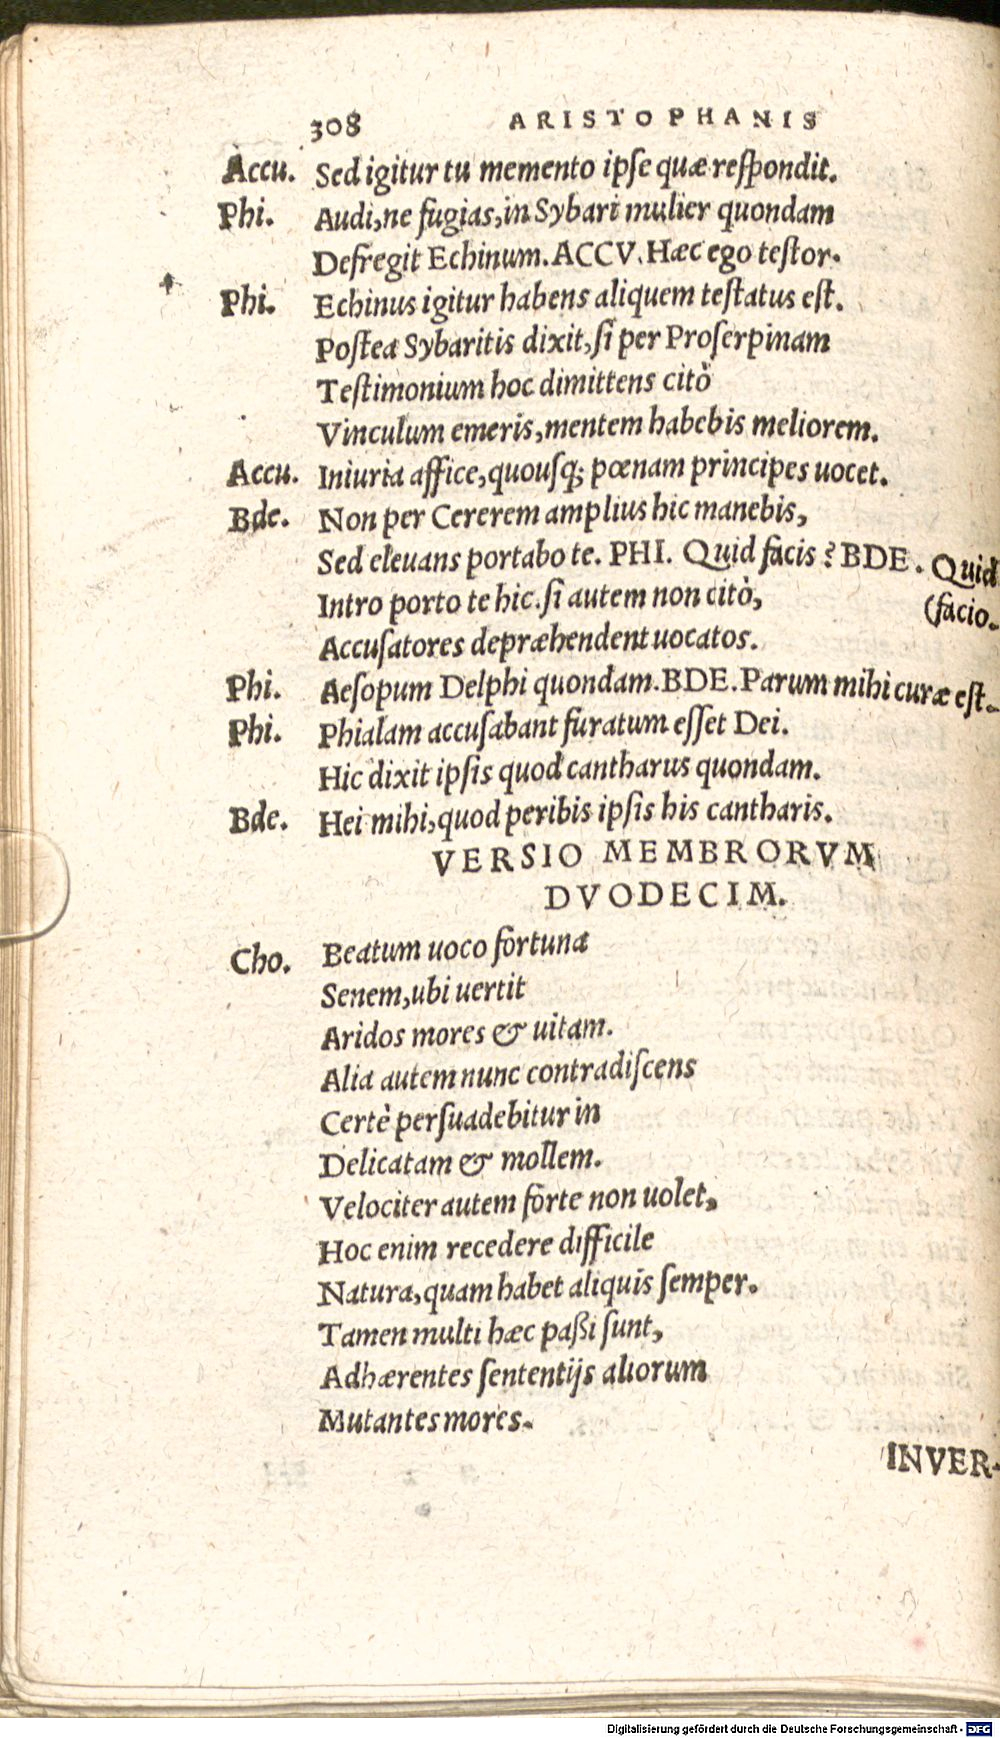 308 ARISTOPHANIS
Accu. Sed igitur tu memento ipse quæ respondit.
Phi. Audi, ne fugias, in Sybari mulier quondam
Defregit Echinum. ACCV. Hæc ego testor.
Phi. Echinus igitur habens aliquem testatus est.
Postea Sybaritis dixit, si per Proserpinam
Testimonium hoc dimittens citò
Vinculum emeris, mentem habebis meliorem.
Accu. Iniuria affice, quousq; pœnam principes uocet.
Bde. Non per Cererem amplius hic manebis,
Sed eleuans portabo te. PHI. Quid facis? BDE. Quid
Intro porto te hic. si autem non citò, (facio.
Accusatores depræhendent uocatos.
Phi. Aesopum Delphi quondam. BDE. Parum mihi curæ est.
Phi. Phialam accusabant furatum esset Dei.
Hic dixit ipsis quod cantharus quondam.
Bde. Hei mihi, quod peribis ipsis his cantharis.
VERSIO MEMBRORVM
DVODECIM.
Cho. Beatum uoco fortunæ
Senem, ubi uertit
Aridos mores & uitam.
Alia autem nunc contradiscens
Certè persuadebitur in
Delicatam & mollem.
Velociter autem forte non uolet,
Hoc enim recedere difficile
Natura, quam habet aliquis semper.
Tamen multi hæc paßi sunt,
Adhærentes sententijs aliorum
Mutantes mores.
INVER-
Digitalisierung gefördert durch die Deutsche Forschungsgemeinschaft - DFG